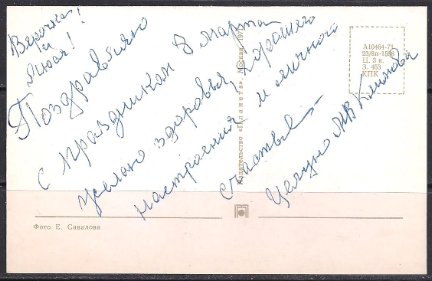 Верочка!
и
Люся!
Поздравляю
с праздником 8 марта
желаю здоровья, хорошего
настроения и личного
счастья.
Целую
Издательство «Планета». Москва. 197
А10464-71
Ц. 3 к.
З. 453
КПК
Фото Е. Савалова